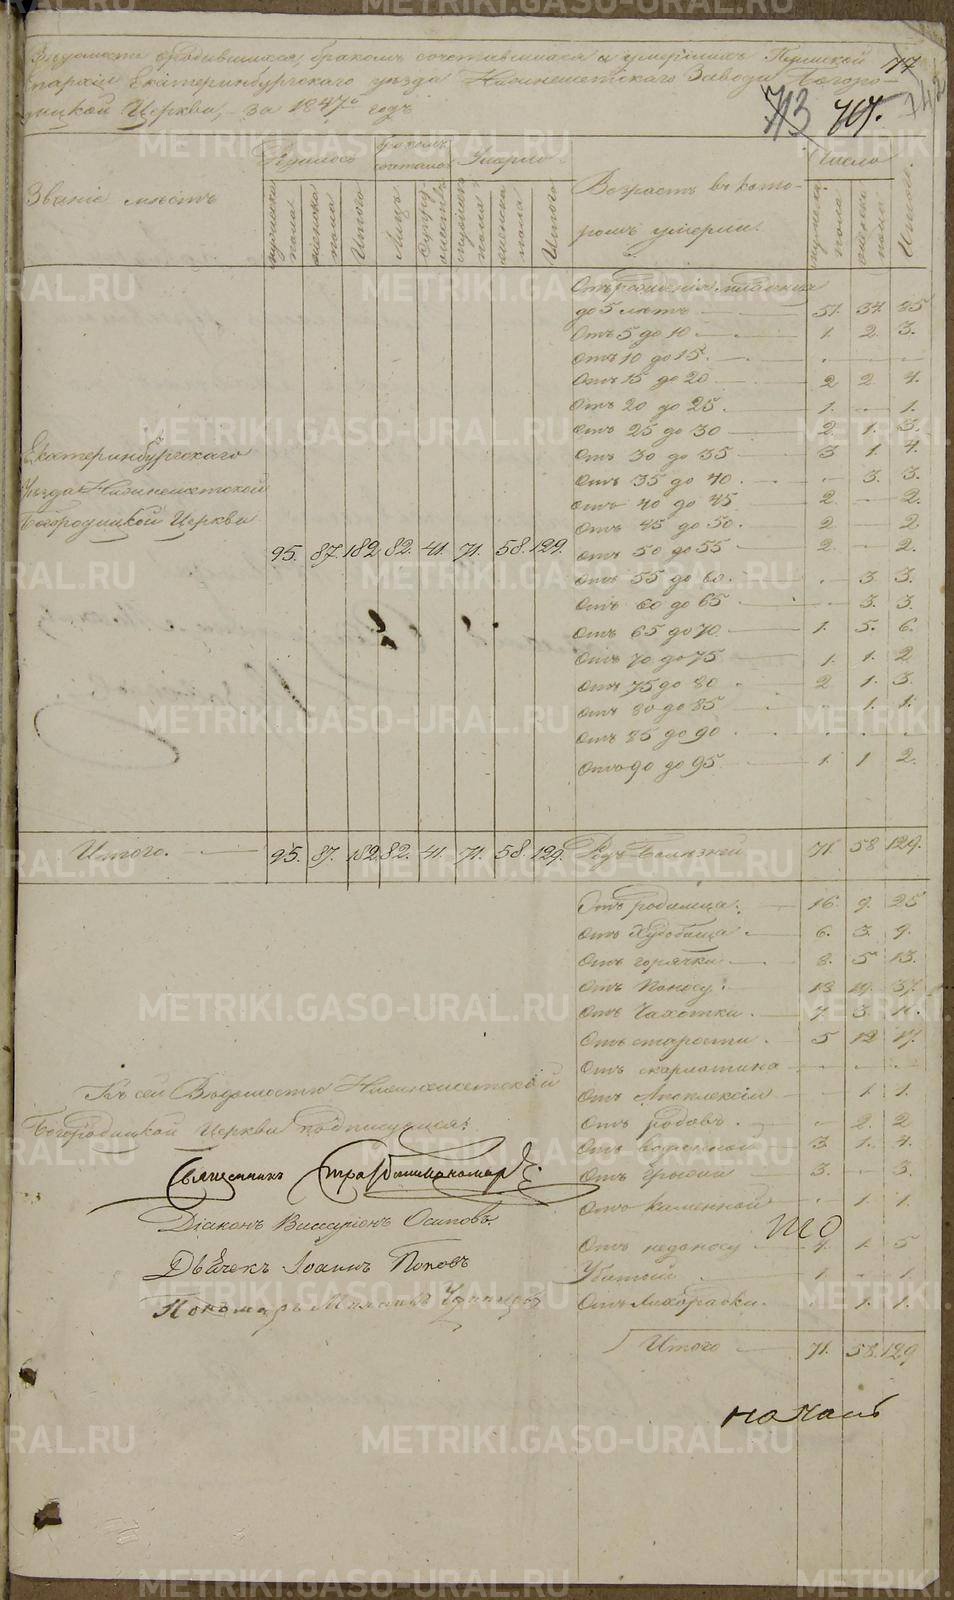 Ведомость о родившихся, браком сочетавшихся и умерших Пермской
Епархіи Екатеринбургскаго уезда Нижнеисетскаго Завода Богоро-
дицкой Церкви, за 1847й годъ
77
713 717. 742
Званіе местъ
Родилось
мужеска пола
женска пола
Итого
Бракомъ сочеталось
Лицъ
Супружествъ
Умерло
мужеска пола
женска пола
Итого
Возрастъ въ кото-
ромъ умерли.
Число
мужеска пола
женска пола
Итого.
Отъ рожденія младенца
до 5 летъ 51. 34. 85
Отъ 5 до 10 1. 2 3.
Отъ 10 до 15.
Отъ 15 до 20 2 2 4.
Отъ 20 до 25. 1. — 1.
Отъ 25 до 30 2. 1. 3.
Отъ 30 до 35 3 1. 4.
Отъ 35 до 40. — 3. 3.
Отъ 40 до 45 2. — 2.
Отъ 45 до 50. 2. 2.
Отъ 50 до 55 2. — 2.
Отъ 55 до 60. — 3. 3.
Отъ 60 до 65 — 3. 3.
Отъ 65 до 70 1. 5. 6.
Отъ 70 до 75 1. 1. 2
Отъ 75 до 80 2 1. 3.
Отъ 80 до 85 1. 1.
Отъ 85 до 90
Отъ 90 до 95 1. 1 2.
Екатеринбургскаго
Уезда Нижнеисетской
Богородицкой Церкви
95. 87. 182 82. 41. 71. 58. 129.
Итого. 95. 87. 182 82. 41. 71. 58. 129.
Родъ болезней 71 58 129.
Отъ родимца. 16. 9. 25
Отъ Худобища 6. 3. 9.
Отъ горячки 8. 5 13.
Отъ Поносу 18 19. 37.
Отъ Чахотки. 7. 3.
Отъ старости. 5 12 17.
Отъ скарлатина
Отъ Апоплексіи 1 1.
Отъ родовъ. 2. 2
Отъ водянной 3. 1. 4.
Отъ 3. — 3.
Отъ каменной 1. 1.
Отъ недоносу 4. 1. 5
Убитой 1. — 1.
Отъ Лихорадки. 1. 1.
Итого 71. 58. 129
Къ сей Ведомости Нижнеисетской
Богородицкой Церкви подписуемся:
Священникъ
Діаконъ Виссаріонъ Осиповъ.
Дьячекъ Іоаннъ Поповъ
Пономарь
METRIKI.GASO-URAL.RU